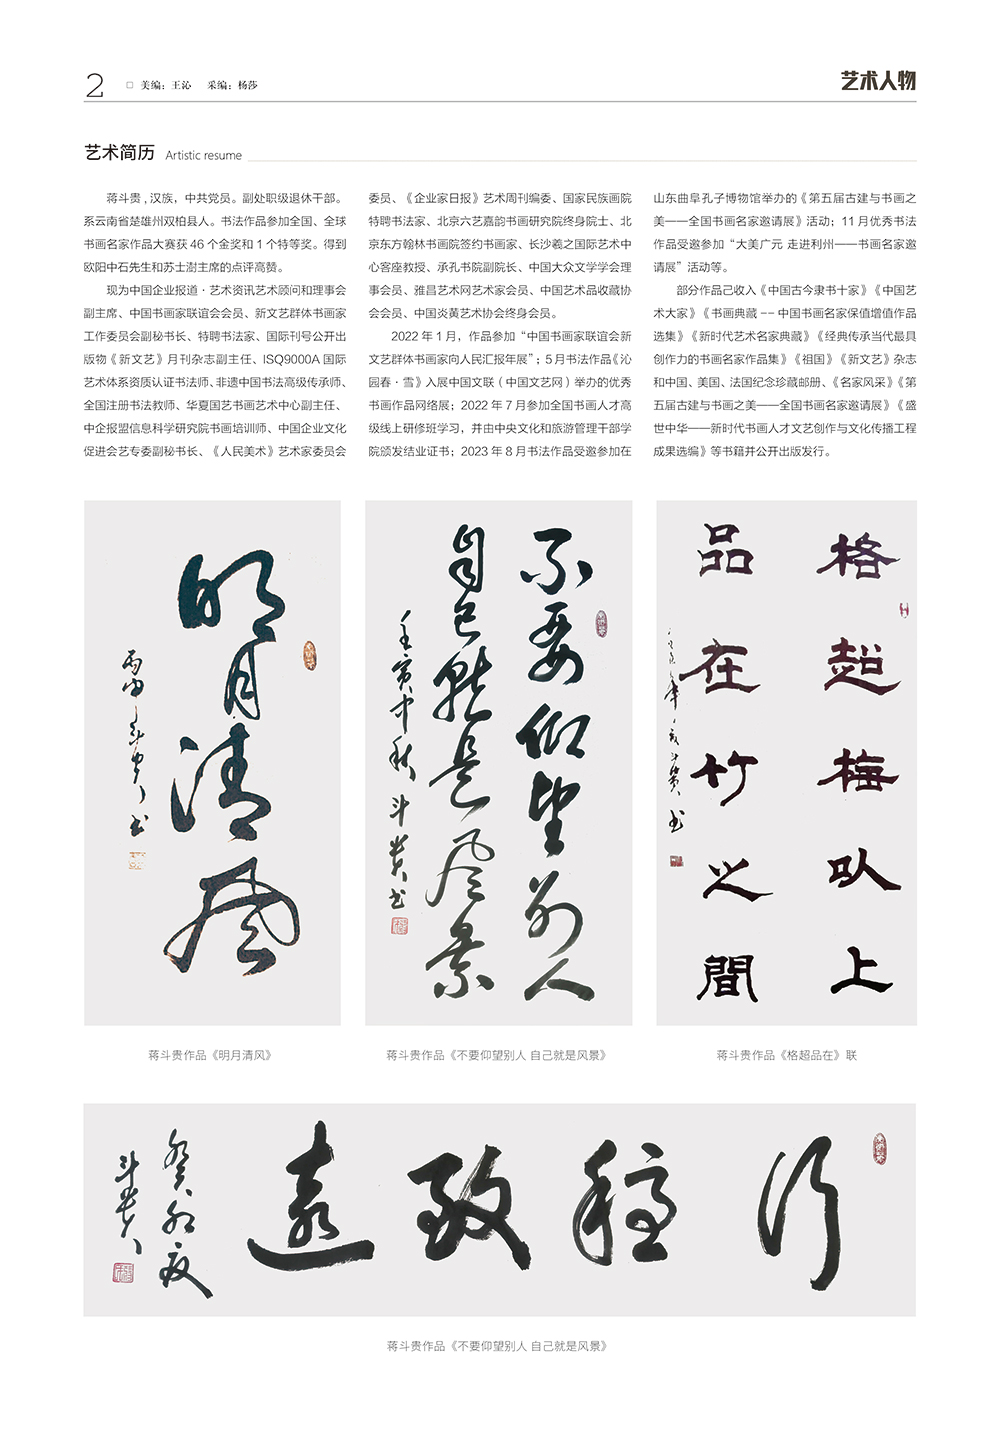 2
□ 美编：王沁 采编：杨莎
艺术人物
艺术简历 Artistic resume
蒋斗贵，汉族，中共党员。副处职级退休干部。
系云南省楚雄州双柏县人。书法作品参加全国、全球
书画名家作品大赛获 46 个金奖和 1 个特等奖。得到
欧阳中石先生和苏士澍主席的点评高赞。
现为中国企业报道·艺术资讯艺术顾问和理事会
副主席、中国书画家联谊会会员、新文艺群体书画家
工作委员会副秘书长、特聘书法家、国际刊号公开出
版物《新文艺》月刊杂志副主任、ISQ9000A 国际
艺术体系资质认证书法师、非遗中国书法高级传承师、
全国注册书法教师、华夏国艺书画艺术中心副主任、
中企报盟信息科学研究院书画培训师、中国企业文化
促进会艺专委副秘书长、《人民美术》艺术家委员会
委员、《企业家日报》艺术周刊编委、国家民族画院
特聘书法家、北京六艺嘉韵书画研究院终身院士、北
京东方翰林书画院签约书画家、长沙羲之国际艺术中
心客座教授、承孔书院副院长、中国大众文学学会理
事会员、雅昌艺术网艺术家会员、中国艺术品收藏协
会会员、中国炎黄艺术协会终身会员。
2022 年 1 月，作品参加“中国书画家联谊会新
文艺群体书画家向人民汇报年展”；5 月书法作品《沁
园春·雪》入展中国文联（中国文艺网）举办的优秀
书画作品网络展；2022 年 7 月参加全国书画人才高
级线上研修班学习，并由中央文化和旅游管理干部学
院颁发结业证书；2023 年 8 月书法作品受邀参加在
山东曲阜孔子博物馆举办的《第五届古建与书画之
美——全国书画名家邀请展》活动；11 月优秀书法
作品受邀参加“大美广元 走进利州——书画名家邀
请展”活动等。
部分作品已收入《中国古今隶书十家》《中国艺
术大家》《书画典藏 -- 中国书画名家保值增值作品
选集》《新时代艺术名家典藏》《经典传承当代最具
创作力的书画名家作品集》《祖国》《新文艺》杂志
和中国、美国、法国纪念珍藏邮册、《名家风采》《第
五届古建与书画之美——全国书画名家邀请展》《盛
世中华——新时代书画人才文艺创作与文化传播工程
成果选编》等书籍并公开出版发行。
明月清风
斗贵书
不要仰望别人
自己就是风景
壬寅中秋 斗贵书
格超梅以上
品在竹之間
斗贵书
蒋斗贵作品《明月清风》
蒋斗贵作品《不要仰望别人 自己就是风景》
蒋斗贵作品《格超品在》联
行稳致遠
癸卯夏
斗贵
蒋斗贵作品《不要仰望别人 自己就是风景》